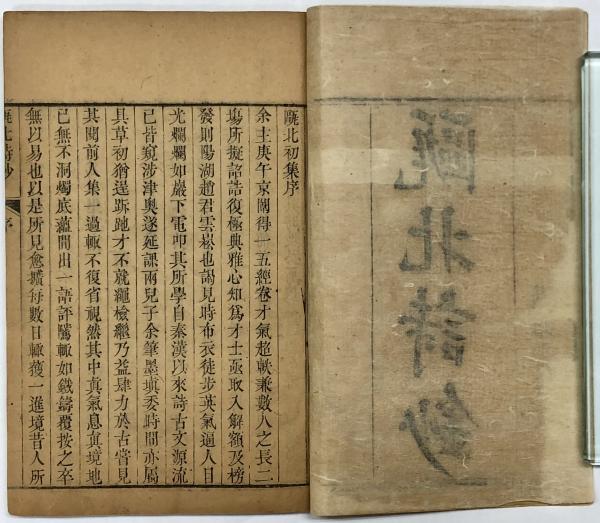 甌北詩鈔
甌北初集序
余主庚午京闈得一五經卷才氣超軼兼數人之長二
塲所擬詔誥復極典雅心知爲才士亟取入解額及榜
發則陽湖趙君雲崧也謁見時布衣徒步英氣逼人目
光爛爛如巖下電叩其所學自秦漢以來詩古文源流
已皆窺涉津奥遂延課兩兒子余筆墨塡委時間亦屬
具草初猶逞跅跎才不就繩檢繼乃益肆力於古嘗見
其閱前人集一過輙不復省視然其中眞氣息眞境地
已無不洞燭底蘊間出一語評騭輙如鐵鑄覆按之卒
無以易也以是所見愈壙每數日輙獲一進境昔人所
甌北詩鈔 序